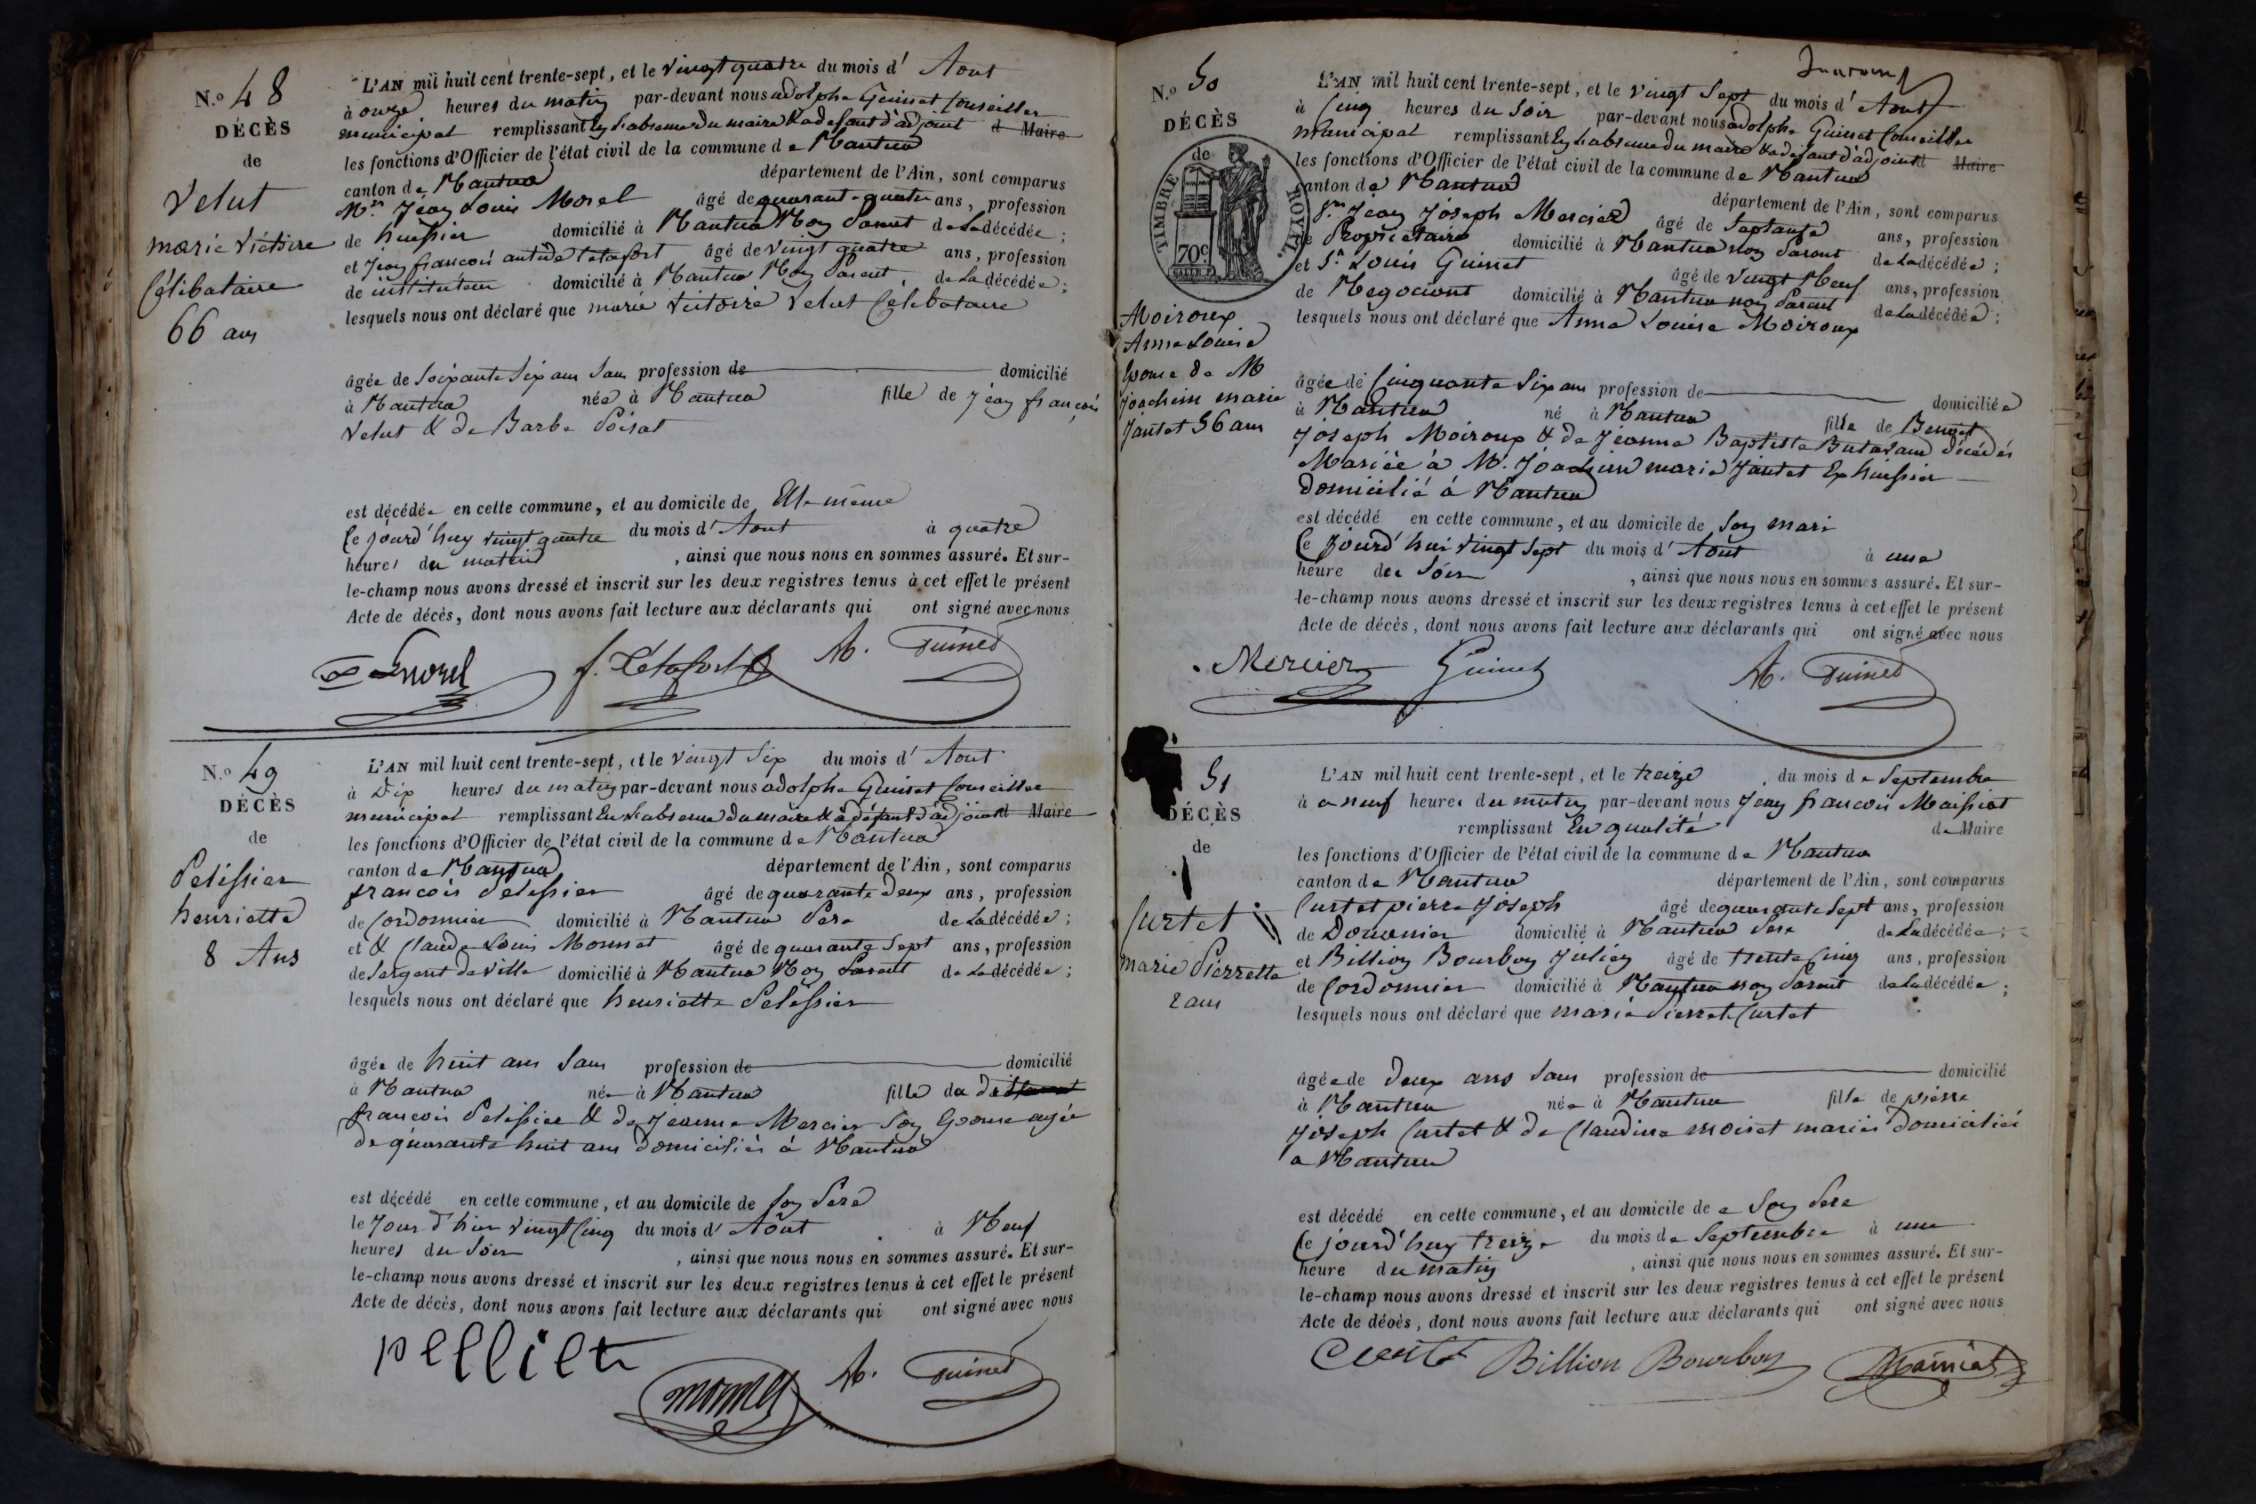 N.o 48
DÉCÈS
de
Velut
marie Victoire
Célibataire
66 ans
L'AN mil huit cent trente-sept, et le vingt quatre du mois d' Aout
à onze heures du matin par-devant nous adolphe Guinet Conseiller
municipal remplissant En l'absence du maire & a défaut d'adjoint d Maire
les fonctions d'Officier de l'état civil de la commune de Nantua
canton de Nantua département de l'Ain, sont comparus
Mr. Jéan Louis Morel âgé de quarant-quatre ans, profession
de huissier domicilié à Nantua Non Parent de la décédée;
et Jean françois létafort âgé de vingt quatre ans, profession
de instituteur domicilié à Nantua Non Parent de la décédée;
lesquels nous ont déclaré que marie Victoire Velut Célibataire
âgée de Soixante Six ans Sans profession de domicilié
à Nantua née à Nantua fille de Jéan françois
Velut & de Barbe Poisat
est décédée en cette commune, et au domicile de Elle-même
Ce jourd'huy vingt quatre du mois d' Aout à quatre
heures du matin, ainsi que nous nous en sommes assuré. Et sur-
le-champ nous avons dressé et inscrit sur les deux registres tenus à cet effet le présent
Acte de décès, dont nous avons fait lecture aux déclarants qui ont signé avec nous
Morel f. Létafort A. Guinet
N.o 49
DÉCÈS
de
Pelissier
henriette
8 Ans
L'AN mil huit cent trente-sept, et le vingt Six du mois d' Aout
à Dix heures du matin par-devant nous adolphe Guinet Conseiller
municipal remplissant En l'absence du maire & à défaut d'adjoint d Maire
les fonctions d'Officier de l'état civil de la commune de Nantua
canton de Nantua département de l'Ain, sont comparus
françois Pelissier âgé de quarante Deux ans, profession
de Cordonnier domicilié à Nantua Père de la décédée;
et & Claude Louis Monnet âgé de quarante Sept ans, profession
de Sergent de Ville domicilié à Nantua Non Parent de la décédée;
lesquels nous ont déclaré que henriette Pelissier
âgée de huit ans Sans profession de domicilié
à Nantua née à Nantua fille du dit
françois Pelissier & de Jéanne Mercier Son Epouse agée
de quarante huit ans Domiciliés à Nantua
est décédé en cette commune, et au domicile de Son Père
le Jour d'hier vingt Cinq du mois d' Aout à Neuf
heures du Soir, ainsi que nous nous en sommes assuré. Et sur-
le-champ nous avons dressé et inscrit sur les deux registres tenus à cet effet le présent
Acte de décès, dont nous avons fait lecture aux déclarants qui ont signé avec nous
monnet A. Guinet
N.o 50
DÉCÈS
de
TIMBRE ROYAL.
70c
Moiroux
Anne Louise
Epouse de M
Joachim marie
Jantet 56 ans
L'AN mil huit cent trente-sept, et le vingt Sept du mois d' Aout
à Cinq heures du Soir par-devant nous adolphe Guinet Conseiller
municipal remplissant En l'absence du maire & a défaut d'adjoint d Maire
les fonctions d'Officier de l'état civil de la commune de Nantua
canton de Nantua département de l'Ain, sont comparus
Sr. Jéan Joseph Mercier âgé de Septante ans, profession
de Propriétaire domicilié à Nantua non Parent de la décédée;
et Sr. Louis Guinet âgé de vingt Neuf ans, profession
de Negociant domicilié à Nantua non Parent de la décédée;
lesquels nous ont déclaré que Anne Louise Moiroux
âgée de Cinquante Six ans profession de domiciliée
à Nantua né à Nantua fille de Benoit
Joseph Moiroux & de Jéanne Baptiste Butavand décédés
Mariée à M. Joachim marie Jantet Ex huissier
domicilié à Nantua
est décédé en cette commune, et au domicile de Son mari
Ce Jourd'hui vingt Sept du mois d' Aout à une
heure du Soir, ainsi que nous nous en sommes assuré. Et sur-
le-champ nous avons dressé et inscrit sur les deux registres tenus à cet effet le présent
Acte de décès, dont nous avons fait lecture aux déclarants qui ont signé avec nous
Mercier Guinet A. Guinet
51
DÉCÈS
de
Curtet
marie Pierrette
2 ans
L'AN mil huit cent trente-sept, et le treize du mois de Septembre
à neuf heures du matin par-devant nous Jéan françois Maissiat
remplissant En qualité de Maire
les fonctions d'Officier de l'état civil de la commune de Nantua
canton de Nantua département de l'Ain, sont comparus
Curtet pierre Joseph âgé de quarante Sept ans, profession
de Douanier domicilié à Nantua Père de la décédée;
et Billion Bourbon Julien âgé de trente Cinq ans, profession
de Cordonnier domicilié à Nantua non Parent de la décédée;
lesquels nous ont déclaré que marie Pierrete Curtet
âgée de Deux ans Sans profession de domicilié
à Nantua née à Nantua fille de pierre
Joseph Curtet & de Claudine moiret mariés Domiciliés
a Nantua
est décédé en cette commune, et au domicile de Son Père
Ce jourd'huy treize du mois de Septembre à une
heure du matin, ainsi que nous nous en sommes assuré. Et sur-
le-champ nous avons dressé et inscrit sur les deux registres tenus à cet effet le présent
Acte de décès, dont nous avons fait lecture aux déclarants qui ont signé avec nous
Billion Bourbon Maissiat